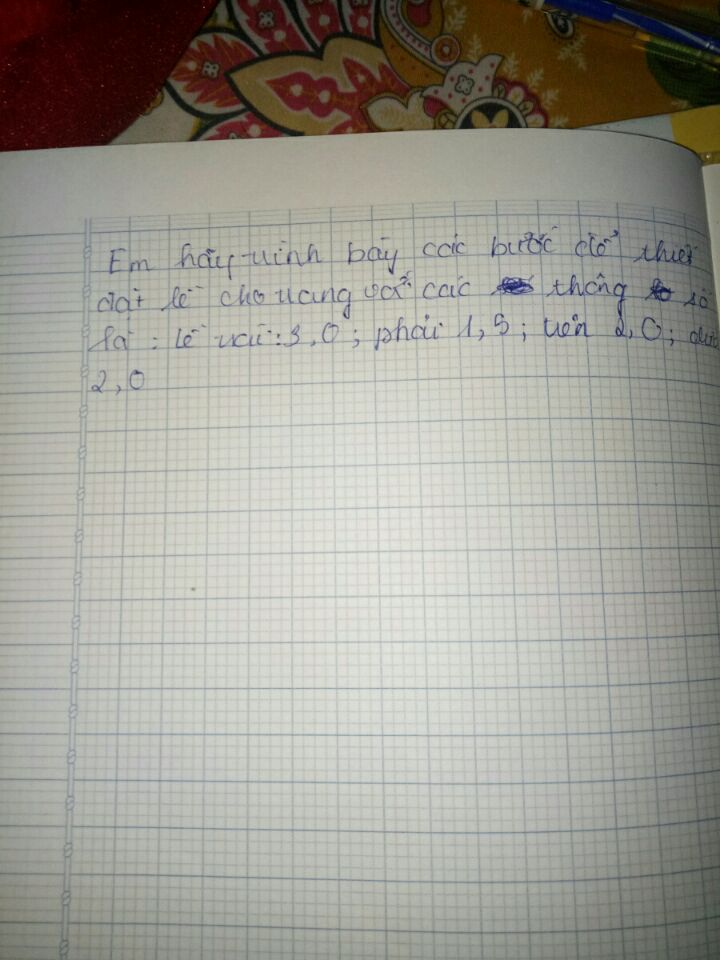 Em hãy trình bày các bước để thiết
đặt lề cho trang với các thông số
là : lề trái : 3,0 ; phải 1,5 ; trên 2,0 ; dưới
2,0